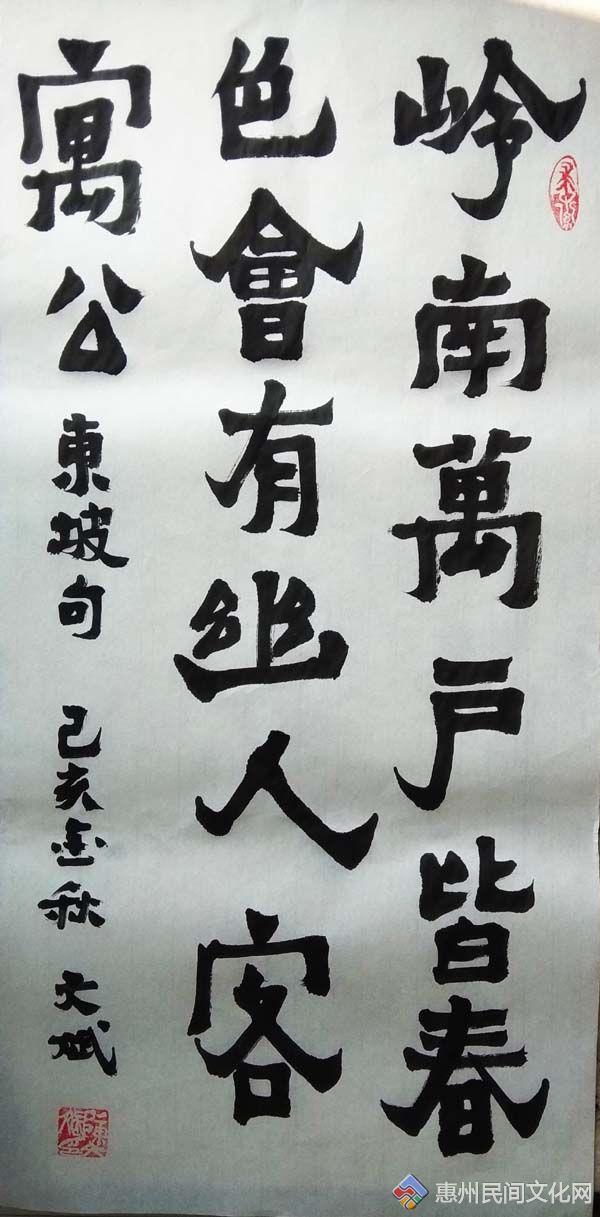 岭南萬戶皆春
色會有幽人客
寓公
東坡句 己亥金秋 文斌
惠州民间文化网